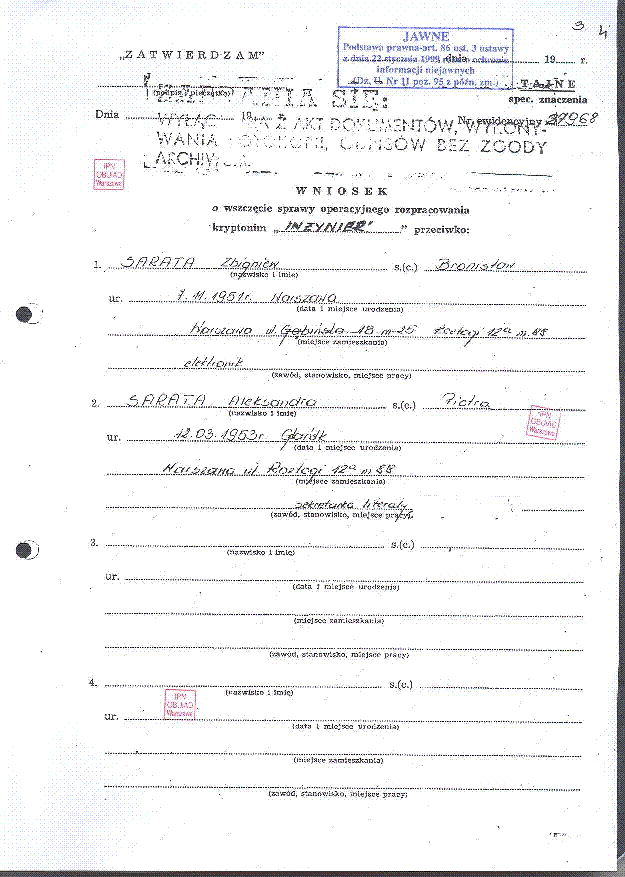 3 4
JAWNE
Podstawa prawna-art. 86 ust. 3 ustawy
z dnia 22 stycznia 1999 r. o ochronie
informacji niejawnych
(Dz. U. Nr 11 poz. 95 z późn. zm.)
„ZATWIERDZAM”
dnia 19 r.
(podpis i pieczątka)
TAJNE
spec. znaczenia
Dnia 19
Nr ewidencyjny 37968
Z AKT DOKUMENTÓW, WYKONY-
WANIA BEZ ZGODY
IPN
OBUiAD
Warszawa
WNIOSEK
o wszczęcie sprawy operacyjnego rozpracowania
kryptonim „INŻYNIER” ” przeciwko:
1. SARATA Zbigniew s.(c.) Bronisław
(nazwisko i imię)
ur. 7.III.1951r. Warszawa
(data i miejsce urodzenia)
Warszawa ul. Gębińska 18 m 25 Rozłogi 12a m. 88
(miejsce zamieszkania)
elektronik
(zawód, stanowisko, miejsce pracy)
2. SARATA Aleksandra s.(c.) Piotra
(nazwisko i imię)
IPN
OBUiAD
Warszawa
ur. 12.03.1953r. Gdańsk
(data i miejsce urodzenia)
Warszawa ul. Rozłogi 12a m. 88
(miejsce zamieszkania)
sekretarka
(zawód, stanowisko, miejsce pracy)
3. s.(c.)
(nazwisko i imię)
ur.
(data i miejsce urodzenia)
(miejsce zamieszkania)
(zawód, stanowisko, miejsce pracy)
4. s.(c.)
(nazwisko i imię)
IPN
OBUiAD
Warszawa
ur.
(data i miejsce urodzenia)
(miejsce zamieszkania)
(zawód, stanowisko, miejsce pracy)